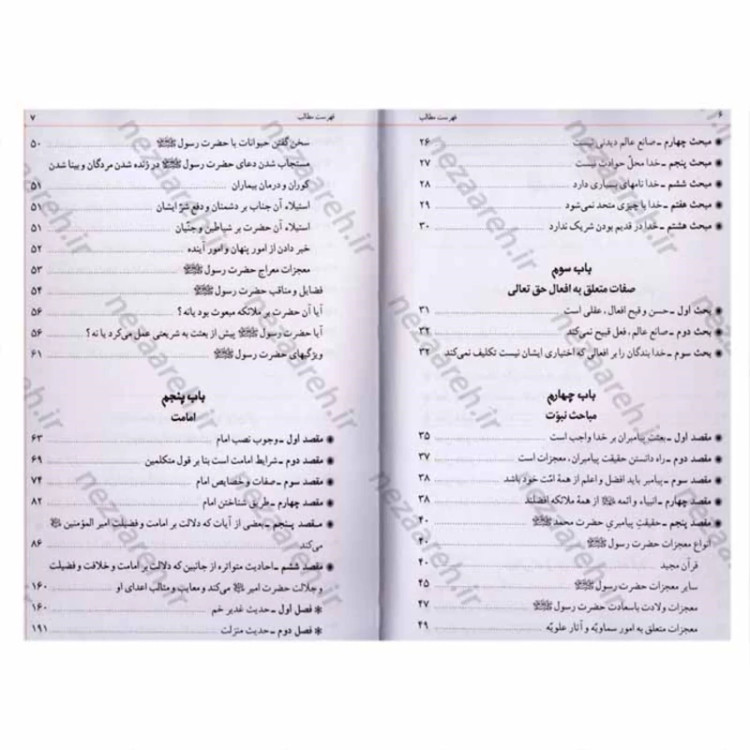 ۶ فهرست مطالب
◉ مبحث چهارم ـ صانع عالم دیدنی نیست ۲۶
◉ مبحث پنجم ـ خدا محلّ حوادث نیست ۲۷
◉ مبحث ششم ـ خدا نامهای بسیاری دارد ۲۸
◉ مبحث هفتم ـ خدا با چیزی متحد نمی‌شود ۲۹
◉ مبحث هشتم ـ خدا در قدیم بودن شریک ندارد ۳۰
باب سوم
صفات متعلق به افعال حق تعالی
◉ بحث اول ـ حسن و قبح افعال، عقلی است ۳۱
◉ بحث دوم ـ صانع عالم، فعل قبیح نمی‌کند ۳۲
◉ بحث سوم ـ خدا بندگان را بر افعالی که اختیاری ایشان نیست تکلیف نمی‌کند ۳۲
باب چهارم
مباحث نبوّت
◉ مقصد اول ـ بعثت پیامبران بر خدا واجب است ۳۵
◉ مقصد دوم ـ راه دانستن حقیقت پیامبران، معجزات است ۳۷
◉ مقصد سوم ـ پیامبر باید افضل و اعلم از همهٔ امّت خود باشد ۳۸
◉ مقصد چهارم ـ انبیاء و ائمه از همهٔ ملائکه افضلند ۳۸
◉ مقصد پنجم ـ حقیقتِ پیامبریِ حضرت محمد ﷺ ۴۰
انواع معجزات حضرت رسول ﷺ ۴۰
قرآن مجید ۴۰
سایر معجزات حضرت رسول ﷺ ۴۵
معجزات ولادت باسعادت حضرت رسول ﷺ ۴۷
معجزات متعلق به امور سماویّه و آثار علویّه ۴۹
فهرست مطالب ۷
سخن گفتن حیوانات با حضرت رسول ﷺ ۵۰
مستجاب شدن دعای حضرت رسول ﷺ در زنده شدن مردگان و بینا شدن
کوران و درمان بیماران ۵۱
استیلاء آن جناب بر دشمنان و دفع شرّ ایشان ۵۱
استیلاء آن حضرت بر شیاطین و جنّیان ۵۱
خبر دادن از امور پنهان و امور آینده ۵۲
معجزات معراج حضرت رسول ﷺ ۵۳
فضایل و مناقب حضرت رسول ﷺ ۵۴
آیا آن حضرت بر ملائکه مبعوث بود یا نه؟ ۵۶
آیا حضرت رسول ﷺ پیش از بعثت به شریعتی عمل می‌کرد یا نه؟ ۵۶
ویژگیهای حضرت رسول ﷺ ۶۱
باب پنجم
امامت
◉ مقصد اول ـ وجوب نصب امام ۶۳
◉ مقصد دوم ـ شرایط امامت است بنا بر قول متکلمین ۶۹
◉ مقصد سوم ـ صفات و خصایص امام ۷۴
◉ مقصد چهارم ـ طریق شناختن امام ۸۲
◉ مقصد پنجم ـ بعضی از آیات که دلالت بر امامت و فضیلت امیر المؤمنین
می‌کند ۸۶
◉ مقصد ششم ـ احادیث متواتره از جانبین که دلالت بر امامت و خلافت و فضیلت
و جلالت حضرت امیر می‌کند و معایب و مثالب اعدای او ۱۶۰
✻ فصل اول ـ حدیث غدیر خم ۱۶۰
✻ فصل دوم ـ حدیث منزلت ۱۹۱
nezaareh.ir